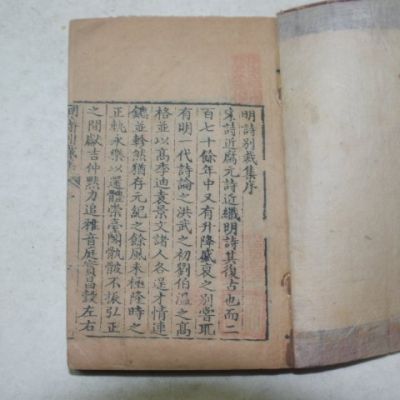 明詩別裁集序
宋詩近腐元詩近纖明詩其復古也而二
百七十餘年中又有升降盛衰之別嘗取
有明一代詩論之洪武之初劉伯溫之高
格並以高季迪袁景文諸人各逞才情連
鑣並軫然猶存元紀之餘風未極隆時之
正軌永樂以還體崇臺閣骫骳不振弘正
之間獻吉仲默力追雅音庭實昌穀左右